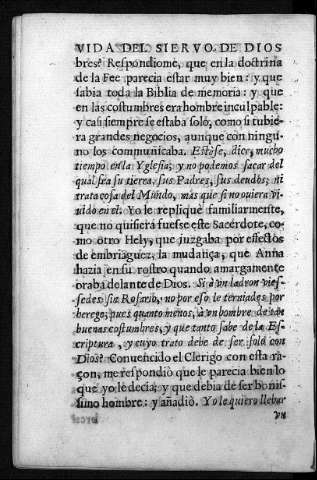 VIDA DEL SIERVO DE DIOS
bres? Respondiome, que en la doctrina
de la Fee parecia estar muy bien: y que
sabia toda la Biblia de memoria: y que
en las costumbres era hombre inculpable:
y casi siempre se estaba solo, como si tubie-
ra grandes negocios, aunque con ningu-
no los communicaba. Estòse, dice, mucho
tiempo en la Yglesia; y no podemos sacar del
qual sea su tierra, sus Padres, sus deudos; ni
trata cosa del Mundo, mas que si no vuiera vi-
uido en el. Yo le repliquè familiarmente,
que no quisiera fuesse este Sacerdote, co-
mo otro Hely, que juzgaba por effectos
de embriaguez, la mudança, que Anna
hazia en su rostro quando amargamente
oraba delante de Dios. Si à vn ladron vies-
sedes su Rosario, no por eso le terniades por
herege; pues quanto menos, à vn hombre de tan
buenas costumbres, y que tanto sabe de la Es-
criptura, y cuyo trato debe de ser solo con
Dios? Convencido el Clerigo con esta ra-
çon, me respondiò que le parecia bien lo
que yo le decia; y que debia de ser bonis-
simo hombre: y añadiò. Yo le quiero llebar
vn